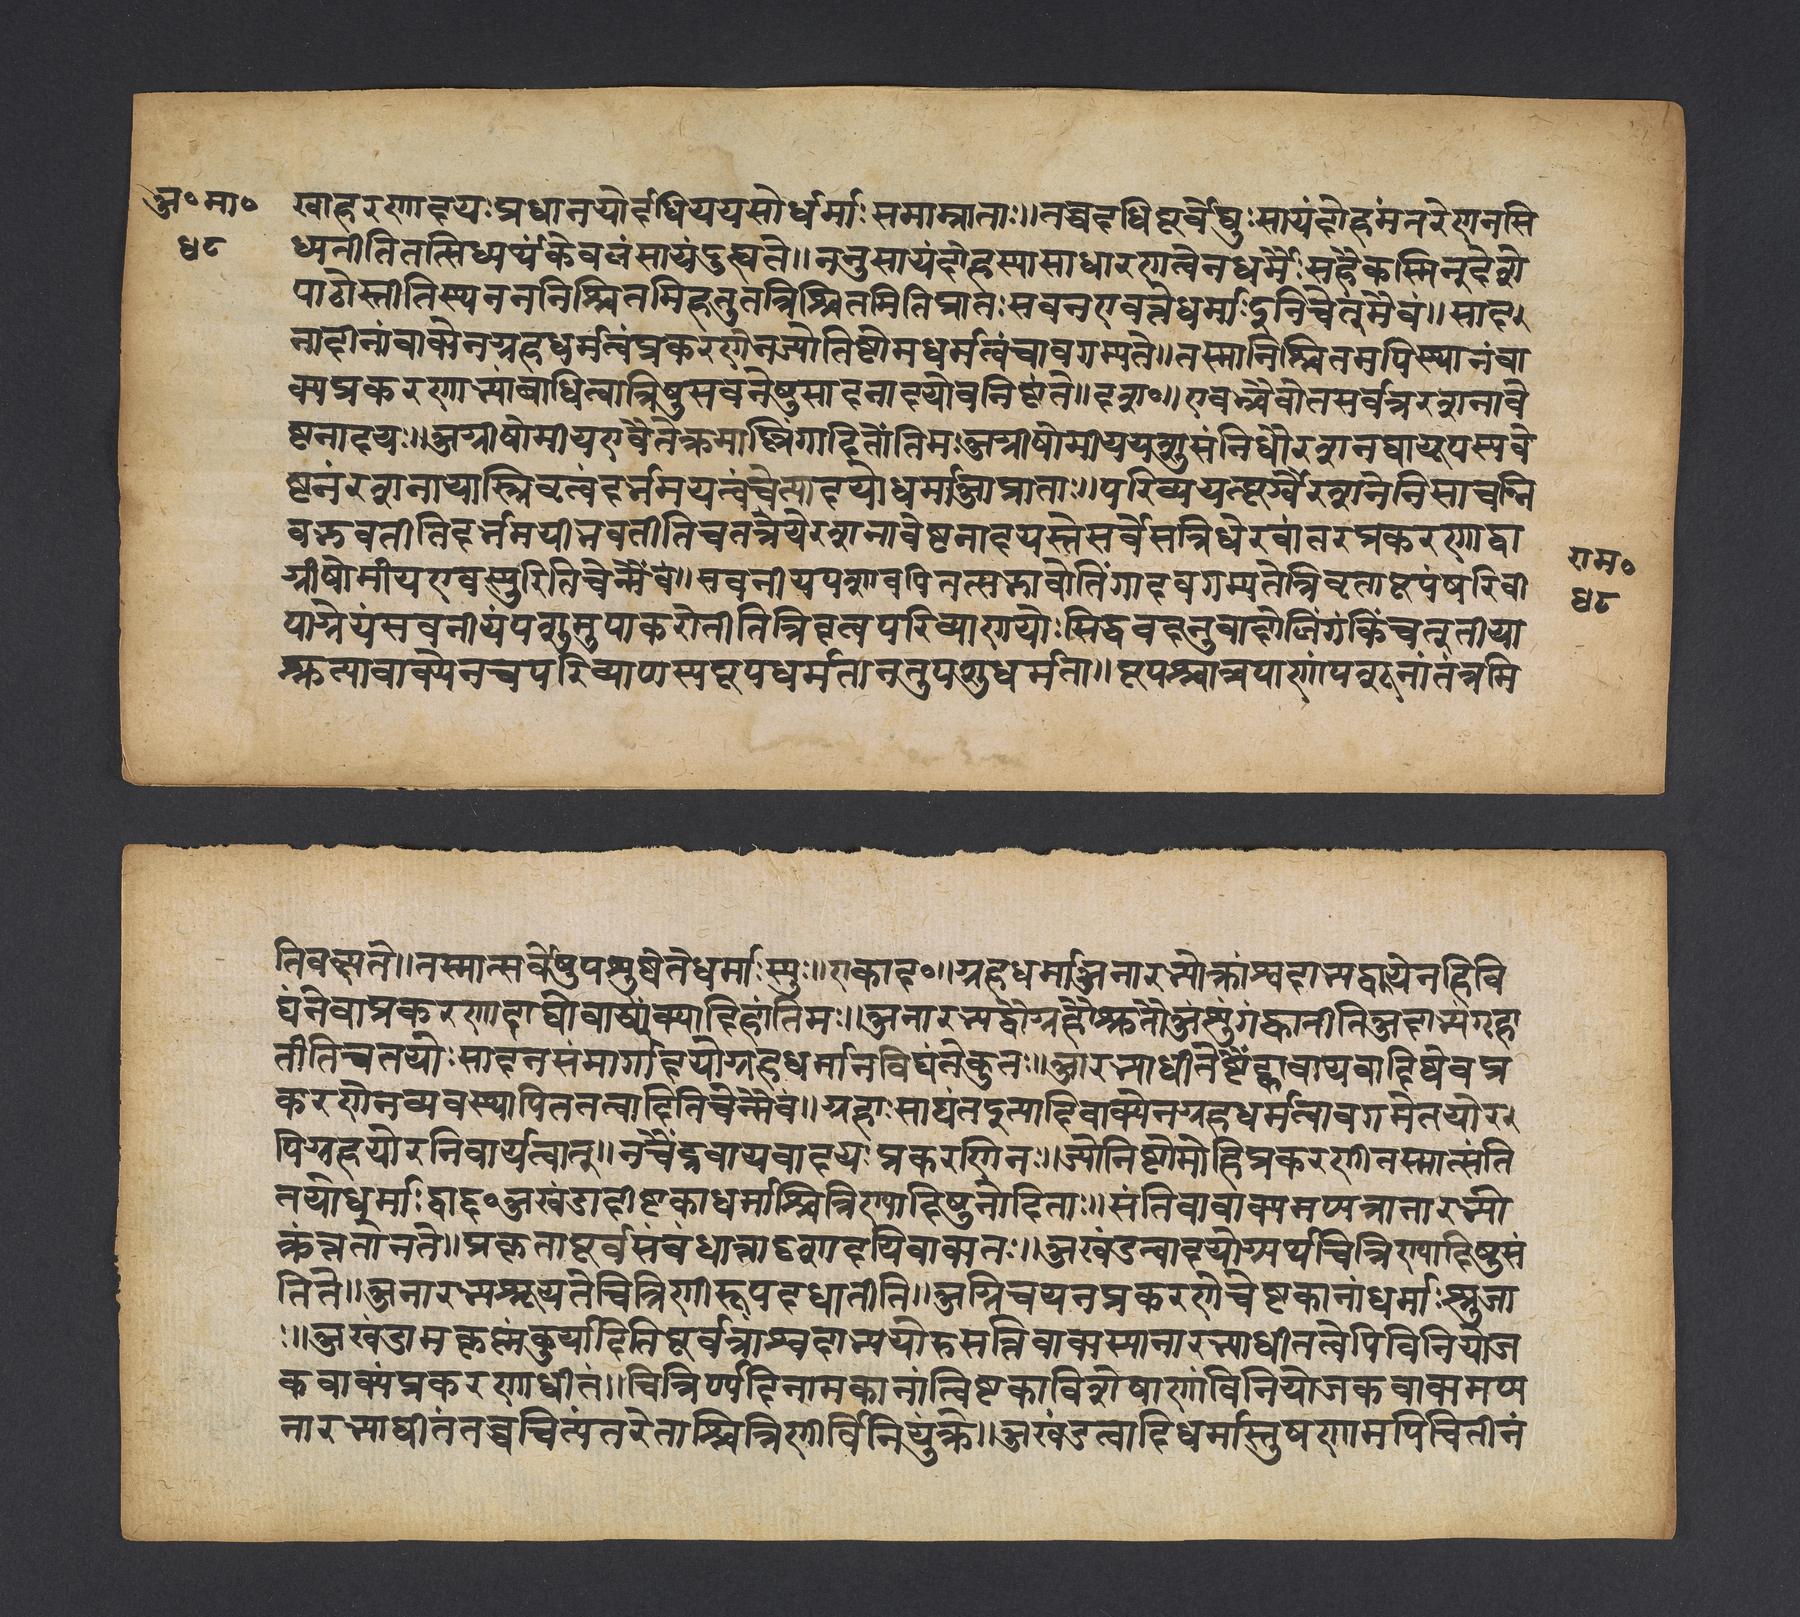 अ॰मा॰
५८
खाहरणादयः प्रधानयोर्दधिपयसोर्धर्माः समाम्नाताः॥ तच्चदधिपूर्वेद्युः सायंदोहमंतरेणनसि
ध्यतीतितत्सिध्यर्थंकेवलंसायंदुह्यते॥ ननुसायंदोहस्यासाधारणत्वेनधर्मैः सहैकस्मिन्देशे
पाठोस्तीतिस्थानंनिश्चितमिहतुतन्निश्चितमितिप्रातः सवनएवतेधर्माः दुनिचेत्मैवं॥ साद
नादीनांवाक्येनग्रहधर्मत्वंप्रकरणेनज्योतिष्टोमधर्मत्वंचावगम्यते॥ तस्मानिश्चितमपिस्थानंवा
क्यप्रकरणाभ्यांबाधित्वात्रिषुसवनेषुसादनादयोवतिष्टंते॥ दशा॰॥ एवमेवोतसर्वत्ररशनावे
ष्टनादयः॥ अग्नीषोमीयएवैतेक्रमाल्लिंगादितोंतिमः अग्नीषोमीयपशुसंनिधौरशनयायूपस्यवे
ष्टनंरशनायास्त्रिवृत्वंदर्भमयत्वंचेत्यादयोधर्माआम्नाताः॥ परिव्ययत्यूर्ग्वैरशनेतिसाचत्रि
वद्भवतीतिदर्भमयीभवतीतिचतत्रयेरशनावेष्टनादयस्तेसर्वेसन्निधेरवांतरप्रकरणाद्वा
ग्नीषोमीयएवस्युरितिचेन्मैवं॥ सवनीयपशावपितत्सद्भावोलिंगादवगम्यतेत्रिवृतायूपंपरिवी
याग्नेयंसवनीयंपशुमुपाकरोतीतित्रिवृत्वपरिव्याणयोः सिद्धवदनुवादोलिंगं किंचतृतीया
श्रुत्यावाक्येनचपरिव्याणस्ययूपधर्मतानतुपशुधर्मता॥ यूपश्चात्रपाणांपशूनांतंत्रमि
राम॰
५८
तिवक्ष्यते॥ तस्मात्सर्वेषुपशुष्वेतेधर्माः स्युः॥ एकाद॰॥ ग्रहधर्माअनारभ्योक्तांश्वदाभ्यद्वायेनहिवि
द्यंतेवाप्रकरणादाद्योवाक्यादिहांतिमः॥ अनारभ्यद्वौग्रहौश्रुतौअंशुंगृह्णातीतिअदाभ्यंगृह्णा
तीतिचतयोः सादनसंमार्गादयोग्रहधर्मानविद्यंतेकुतः॥ आरभ्याधीतेष्वैंद्रवायवादिष्वेवप्र
करणेनव्यवस्थापिततत्वादितिचेन्मैवं॥ ग्रहाः साद्यंतइत्यादिवाक्येनग्रहधर्मत्वावगमेतयोर
पिग्रहयोरनिवार्यत्वात्॥ नचैंद्रवायवादयः प्रकरणिनः॥ ज्योतिष्टोमोहिप्रकरणीतस्मात्संति
तयोधर्माः द्वाद॰ अखंडादीष्टकाधर्माश्चित्रिण्यादिषुनोदिताः॥ संतिवावाक्यमप्यत्रानारभ्यो
क्तंततोनते॥ प्रकृतापूर्वसंबंधात्राद्वशादयिवाक्यतः॥ अखंडत्वादयोग्न्यर्थचित्रिण्यादिषुसं
तिते॥ अनारभ्यश्रूयतेचित्रिणीरूपदधातीति॥ अग्निचयनप्रकरणेचेष्टकानांधर्माः श्रुता
ः॥ अखंडामकृष्णंकुर्यादितिपूर्वत्रांश्वदाभ्ययोरुत्पत्तिवाक्यस्यानारभ्याधीतत्वेपिविनियोज
कवाक्यंप्रकरणाधीतं॥ चित्रिण्यादिनामकानांत्विष्टकाविशेषाणांविनियोजकवाक्यमप्य
नारभ्याधीतंतच्चचित्यंतरेताश्चित्रिणीर्विनियुंक्ते॥ अखंडत्वादिधर्मास्तुषणामपिचितीनं